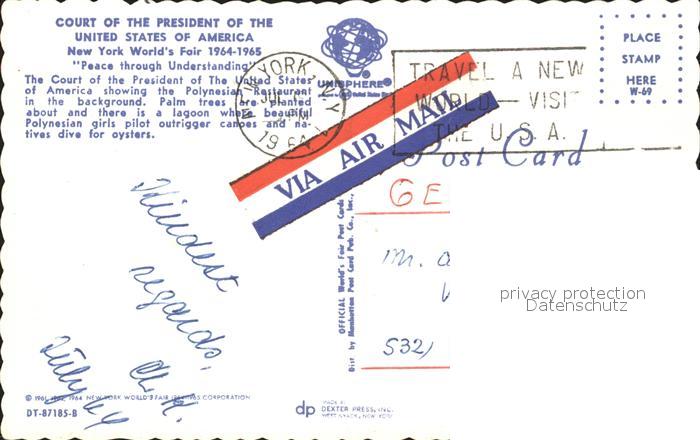 COURT OF THE PRESIDENT OF THE
UNITED STATES OF AMERICA
New York World's Fair 1964-1965
"Peace through Understanding"
The Court of the President of The United States
of America showing the Polynesian Restaurant
in the background. Palm trees planted
about and there is a lagoon where beautiful
Polynesian girls pilot outrigger canoes and na-
tives dive for oysters.
UNISPHERE®
YORK, N.Y.
JUL
1964
TRAVEL A NEW
WORLD — VISIT
THE U.S.A.
PLACE
STAMP
HERE
W-69
VIA AIR MAIL
Post Card
GE
Mr. a
532/
Kindest
regards,
July 64
OFFICIAL World's Fair Post Cards
Dist by Manhattan Post Card Pub. Co., Inc.,
privacy protection
Datenschutz
© 1961, 1962, 1964 NEW YORK WORLD'S FAIR 1964-1965 CORPORATION
DT-87185-B
dp
MADE BY
DEXTER PRESS, INC.
WEST NYACK, NEW YORK